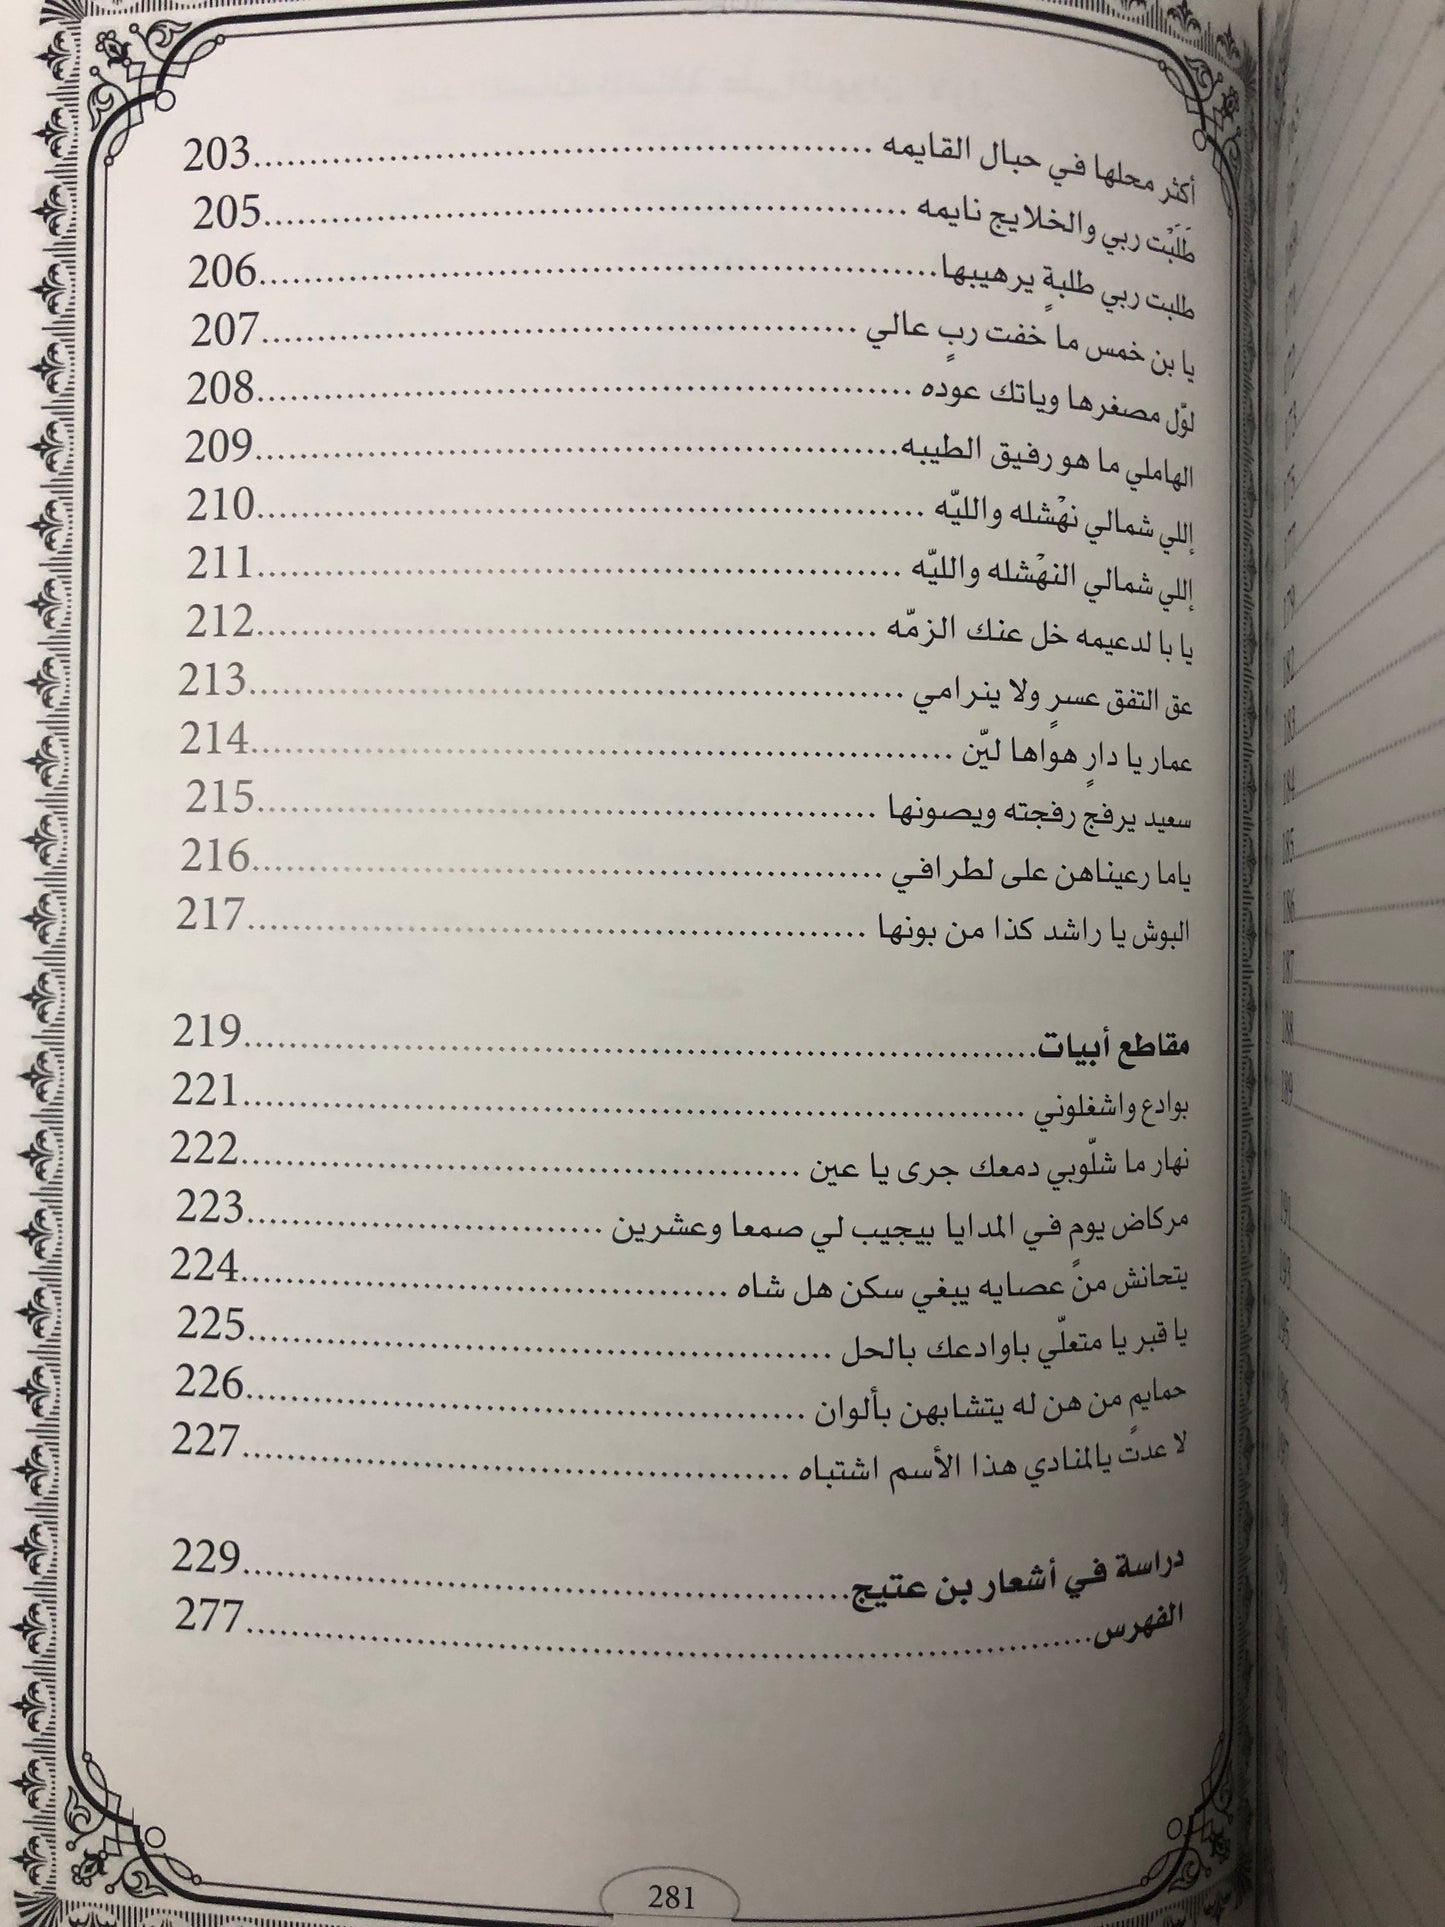 أكثر محلها في حبال القايمه ........ 203
طَلَبْت ربي والخلايج نايمه ........ 205
طلبت ربي طلبةٍ يرهيبها ........ 206
يا بن خمس ما خفت ربٍ عالي ........ 207
لوّل مصغرها وياتك عوده ........ 208
الهاملي ما هو رفيق الطيبه ........ 209
إللي شمالي نهْشله والليّه ........ 210
إللي شمالي النهْشله والليّه ........ 211
يا با لدعيمه خل عنك الزمّه ........ 212
عق التفق عسرٍ ولا ينرامي ........ 213
عمار يا دارٍ هواها ليّن ........ 214
سعيد يرفج رفجته ويصونها ........ 215
ياما رعيناهن على لطرافي ........ 216
البوش يا راشد كذا من بونها ........ 217
مقاطع أبيات ........ 219
بوادع واشغلوني ........ 221
نهار ما شلّوبي دمعك جرى يا عين ........ 222
مركاض يومٍ في المدايا بيجيب لي صمعا وعشرين ........ 223
يتحانش من عصايه يبغي سكن هل شاه ........ 224
يا قبر يا متعلّي باوادعك بالحل ........ 225
حمايمٍ من هن له يتشابهن بألوان ........ 226
لا عدت يالمنادي هذا الأسم اشتباه ........ 227
دراسة في أشعار بن عتيج ........ 229
الفهرس ........ 277
281
179
182
183
184
185
186
187
188
189